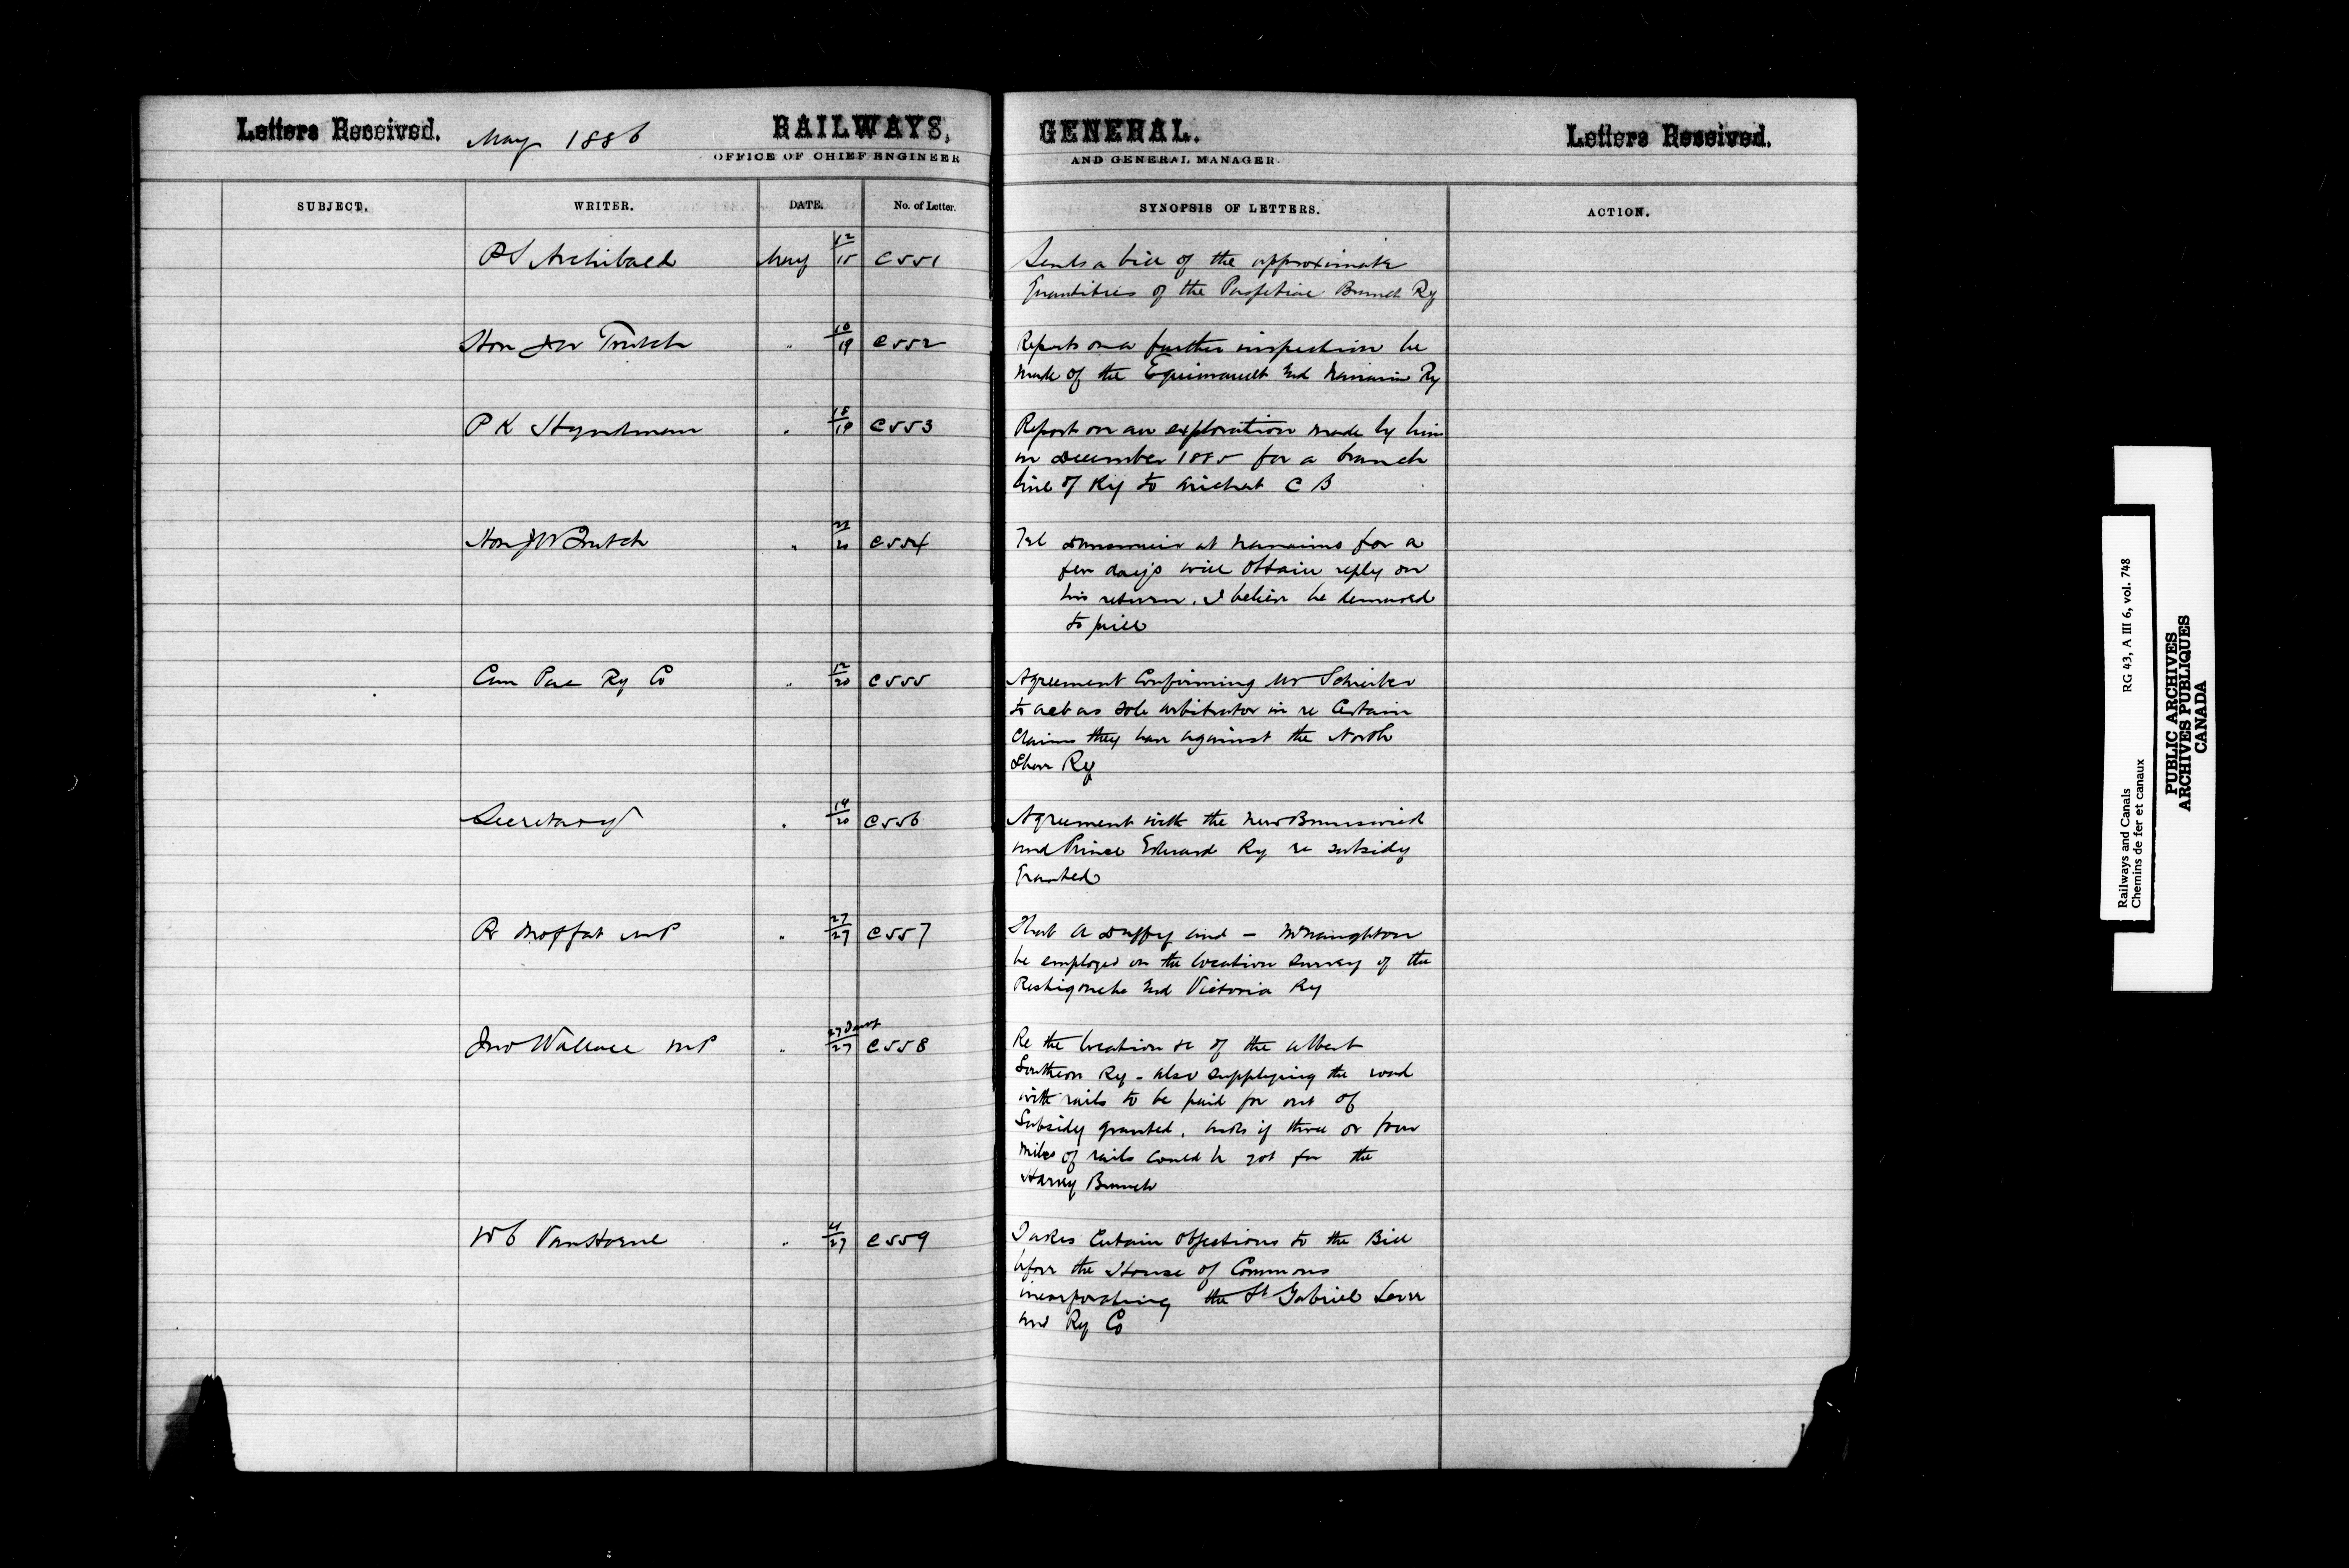 Letters Received. May 1886 RAILWAYS, GENERAL. Letters Received.
OFFICE OF CHIEF ENGINEER AND GENERAL MANAGER.
SUBJECT. WRITER. DATE. No. of Letter. SYNOPSIS OF LETTERS. ACTION.
P S Archibald May 12/15 C551 Sends a bill of the approximate
Quantities of the Branch Ry
Hon J W Trutch " 10/19 C552 Reports on a further inspection he
made of the and Nanaimo Ry
P K Hyndman " 18/19 C553 Reports on an exploration made by him
in December 1885 for a branch
line of Ry to Arichat C B
Hon J W Trutch " /20 C554 Tel Dunsmuir at Nanaimo for a
few days will obtain reply on
his return. I believe he demured
to price
Can Pac Ry Co " 12/20 C555 Agreement Confirming Mr Schreiber
to act as sole arbitrator in re Certain
Claims they have against the North
Shore Ry
Secretary " 19/20 C556 Agreement with the New Brunswick
and Prince Edward Ry re subsidy
Granted
R Moffat MP " 27/27 C557 That A Duffy and — McNaughton
be employed on the location survey of the
Restigouche and Victoria Ry
Jno Wallace MP " 27/27 C558 Re the location &c of the Albert
Southern Ry - also supplying the road
with rails to be paid for out of
Subsidy granted. Asks if three or four
miles of rails could be got for the
Harvey Branch
W C VanHorne " /27 C559 Takes Certain Objections to the Bill
before the House of Commons
incorporating the St Gabriel Levee
and Ry Co
Railways and Canals RG 43, A III 6, vol. 748
Chemins de fer et canaux
PUBLIC ARCHIVES
ARCHIVES PUBLIQUES
CANADA